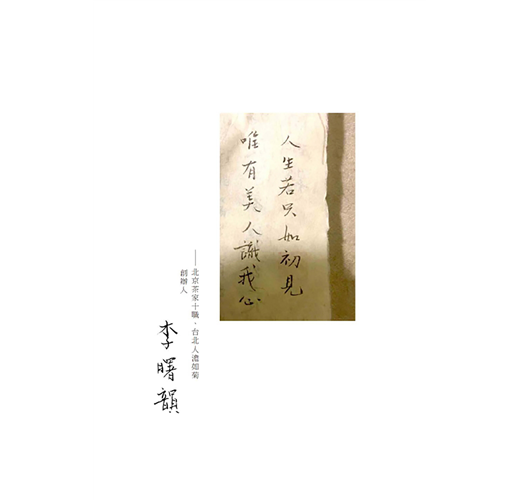 人生若只如初見
唯有美人識我心
——北京茶家十職、台北人澹如菊
創辦人
李曙韻